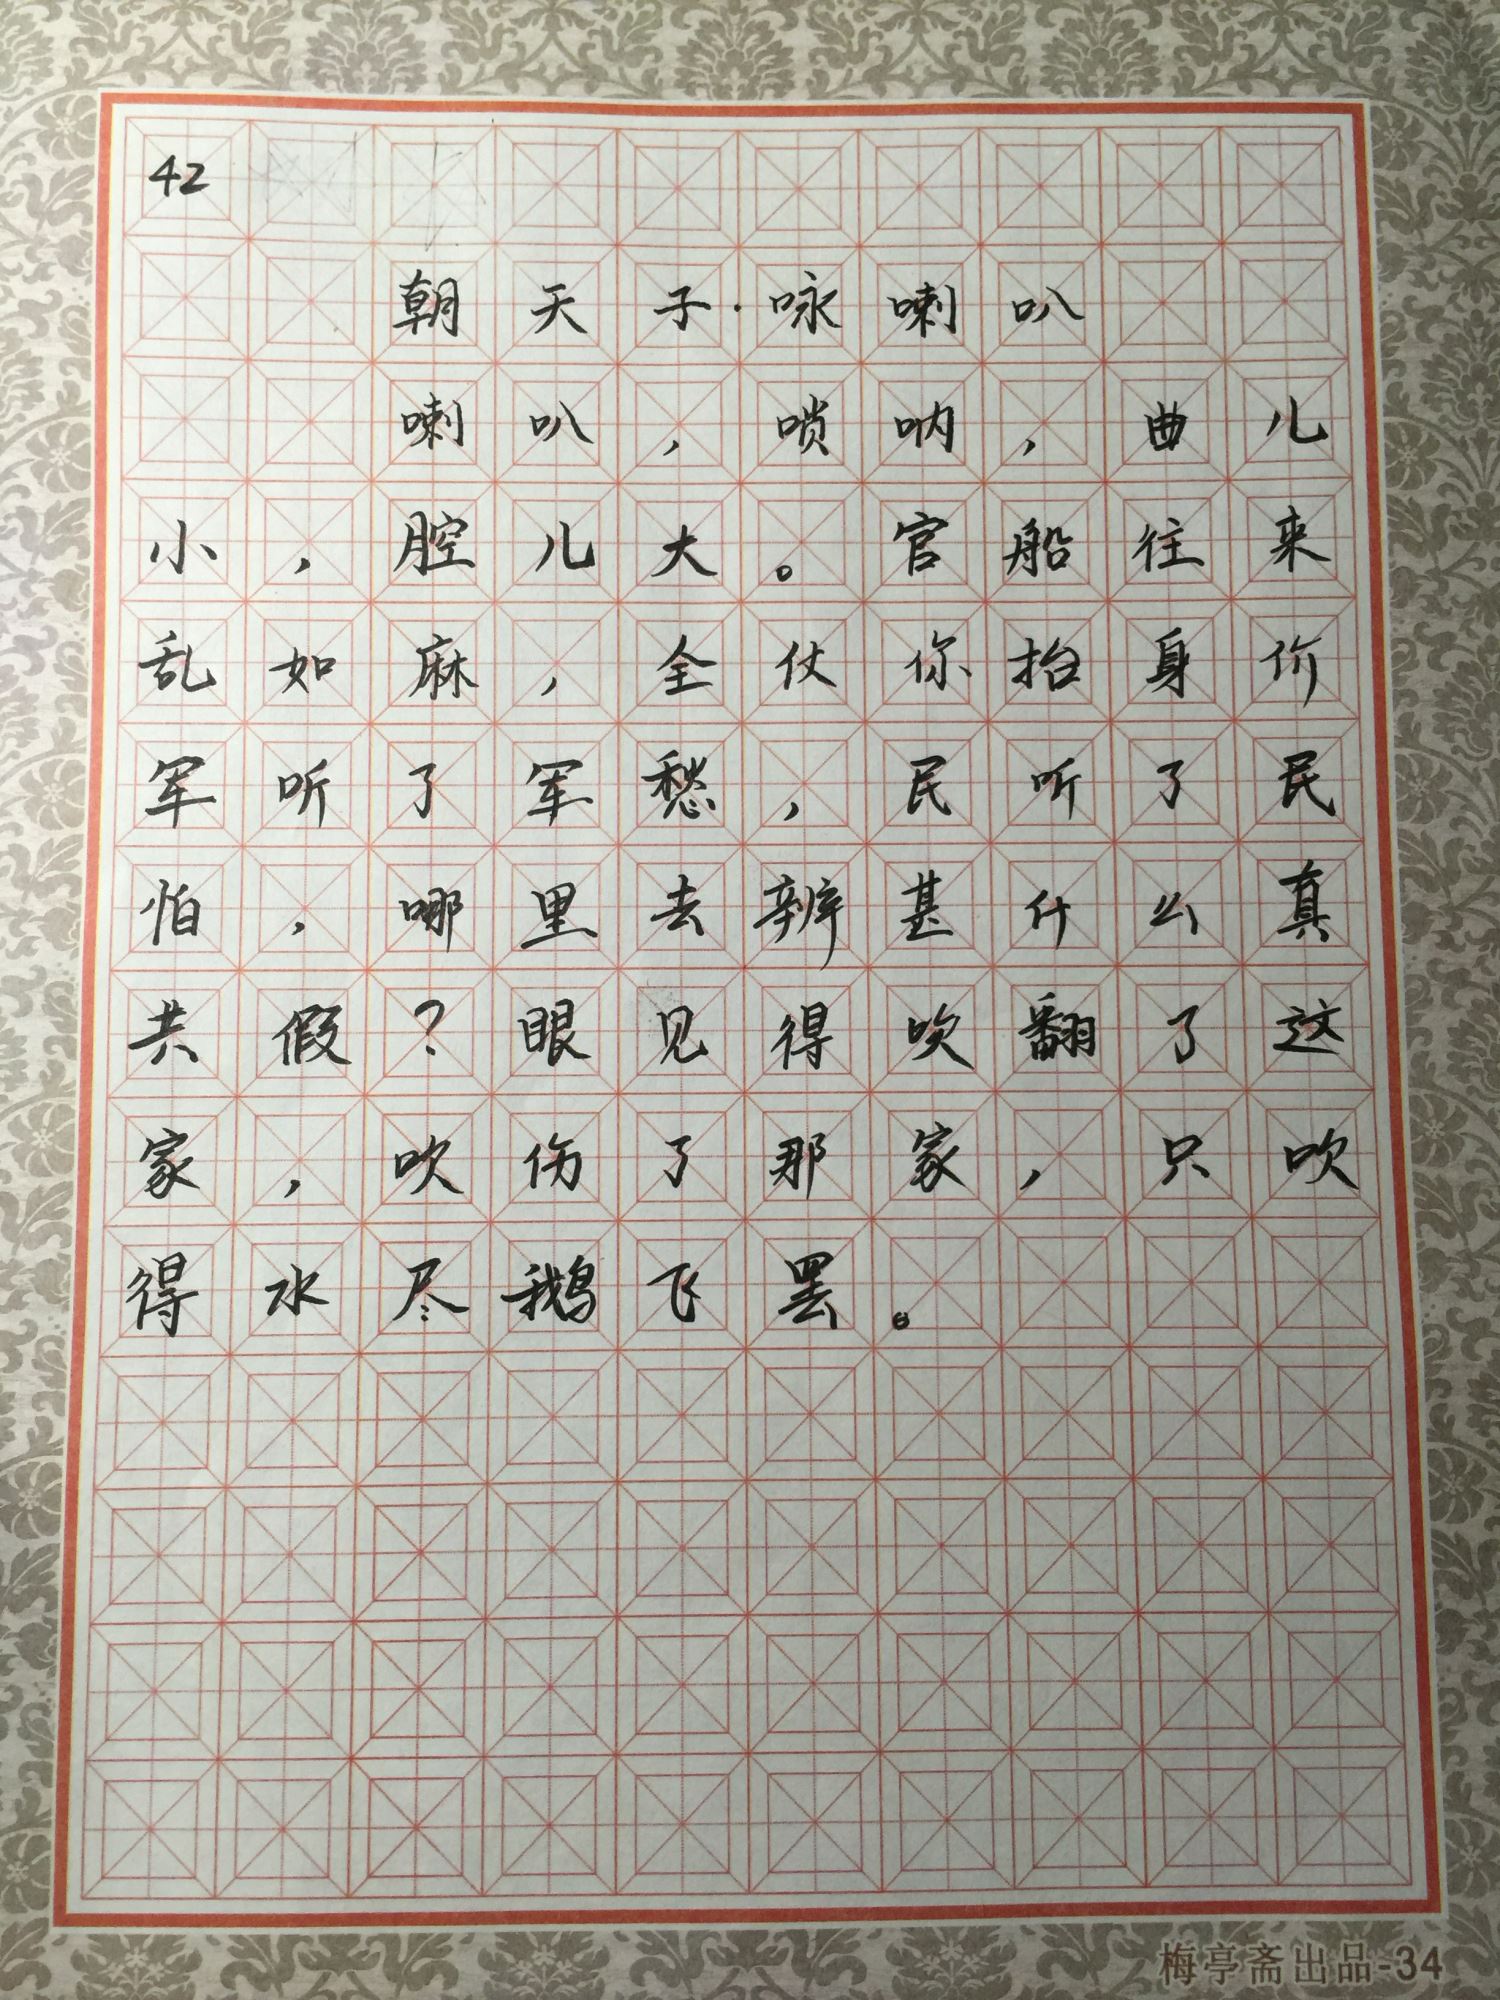 42
朝天子·咏喇叭
喇叭，唢呐，曲儿
小，腔儿大。官船往来
乱如麻，全仗你抬身价
军听了军愁，民听了民
怕，哪里去辨甚什么真
共假？眼见得吹翻了这
家，吹伤了那家，只吹
得水尽鹅飞罢。
梅亭斋出品-34